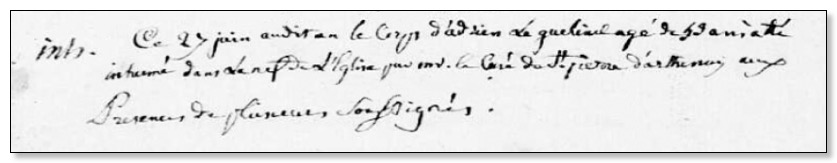 inh. Ce 27 juin audit an le Corps d'adrien Le agé de 59 ans a été
inhumé dans La nef de L'Eglise par mr. le Curé de St pierre d'arthenay aux
Presences de plusieurs Soussignés.